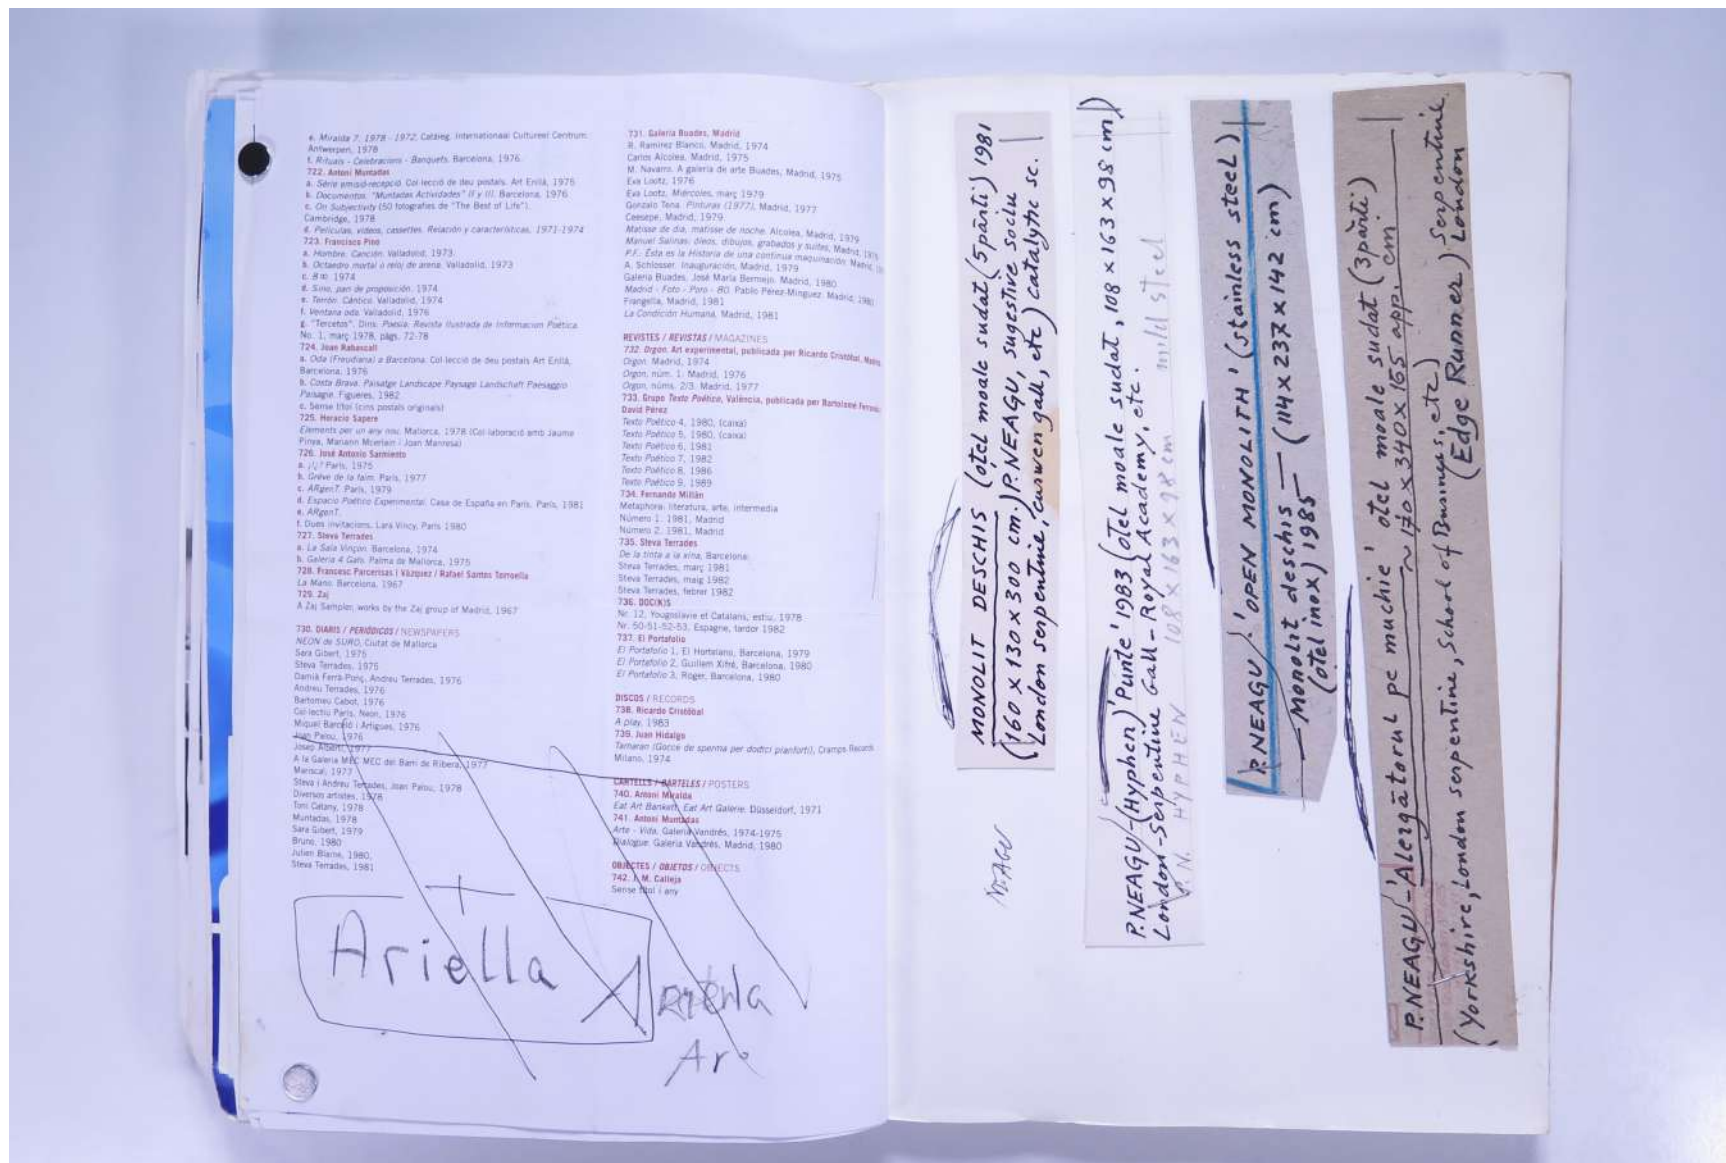 e. Miralda 7. 1978 - 1972. Catàleg. Internationaal Cultureel Centrum.
Antwerpen, 1978
f. Rituals - Celebracions - Banquets. Barcelona, 1976.
722. Antoni Muntadas
a. Sèrie emisió-recepció. Col·lecció de deu postals. Art Enllà, 1975
b. Documentos. "Muntadas Actividades" II y III. Barcelona, 1976
c. On Subjectivity (50 fotografies de "The Best of Life").
Cambridge, 1978
d. Películas, vídeos, cassettes. Relación y características. 1971-1974
723. Francisco Pino
a. Hombre. Canción. Valladolid, 1973
b. Octaedro mortal o reloj de arena. Valladolid, 1973
c. 8 ∞. 1974
d. Sino, pan de proposición. 1974
e. Terrón. Cántico. Valladolid, 1974
f. Ventana oda. Valladolid, 1976
g. "Tercetos". Dins: Poesía. Revista ilustrada de Informacion Poética.
No. 1, març 1978, pàgs. 72-78
724. Joan Rabascall
a. Oda (Freudiana) a Barcelona. Col·lecció de deu postals Art Enllà,
Barcelona, 1976
b. Costa Brava. Paisatge Landscape Paysage Landschaft Paesaggio
Paisagie. Figueres, 1982
c. Sense títol (cins postals originals)
725. Horacio Sapere
Elements per un any nou. Mallorca, 1978 (Col·laboració amb Jaume
Pinya, Mariann Mcerlain i Joan Manresa)
726. José Antonio Sarmiento
a. ¡/¿? París, 1975
b. Grève de la faim. París, 1977
c. ARgenT. París, 1979
d. Espacio Poético Experimental. Casa de España en París, París, 1981
e. ARgenT.
f. Dues invitacions. Lara Vincy, París 1980
727. Steva Terrades
a. La Sala Vinçon. Barcelona, 1974
b. Galeria 4 Gats. Palma de Mallorca, 1975
728. Francesc Parcerisas i Vázquez / Rafael Santos Torroella
La Mano. Barcelona, 1967
729. Zaj
A Zaj Sampler, works by the Zaj group of Madrid, 1967
730. DIARIS / PERIÓDICOS / NEWSPAPERS
NEON de SURO, Ciutat de Mallorca
Sara Gibert, 1975
Steva Terrades, 1975
Damià Ferrà-Ponç, Andreu Terrades, 1976
Andreu Terrades, 1976
Bartomeu Cabot, 1976
Col·lectiu París, Neon, 1976
Miquel Barceló i Artigues, 1976
Joan Palou, 1976
Josep Albertí, 1977
A la Galeria MEC MEC del Barri de Ribera, 1977
Mariscal, 1977
Steva i Andreu Terrades, Joan Palou, 1978
Diversos artistes, 1978
Toni Catany, 1978
Muntadas, 1978
Sara Gibert, 1979
Bruno, 1980
Julien Blaine, 1980,
Steva Terrades, 1981
731. Galeria Buades, Madrid
R. Ramírez Blanco, Madrid, 1974
Carlos Alcolea, Madrid, 1975
M. Navarro. A galería de arte Buades, Madrid, 1975
Eva Lootz, 1976
Eva Lootz, Miércoles, març 1979
Gonzalo Tena. Pinturas (1977), Madrid, 1977
Ceesepe, Madrid, 1979
Matisse de día, matisse de noche. Alcolea, Madrid, 1979
Manuel Salinas: óleos, dibujos, grabados y suites, Madrid,
P.F.: Ésta es la Historia de una continua maquinación. Madrid,
A. Schlosser. Inauguración, Madrid, 1979
Galeria Buades, José María Bermejo. Madrid, 1980
Madrid - Foto - Poro - 80. Pablo Pérez-Mínguez. Madrid, 1980
Frangella, Madrid, 1981
La Condición Humana, Madrid, 1981
REVISTES / REVISTAS / MAGAZINES
732. Orgon. Art experimental, publicada per Ricardo Cristóbal,
Orgon. Madrid, 1974
Orgon, núm. 1. Madrid, 1976
Orgon, núms. 2/3. Madrid, 1977
733. Grupo Texto Poético, València, publicada per Bartolomé
David Pérez
Texto Poético 4, 1980, (caixa)
Texto Poético 5, 1980, (caixa)
Texto Poético 6, 1981
Texto Poético 7, 1982
Texto Poético 8, 1986
Texto Poético 9, 1989
734. Fernando Millán
Metaphora: literatura, arte, intermedia
Número 1. 1981, Madrid
Número 2. 1981, Madrid
735. Steva Terrades
De la tinta a la xina, Barcelona:
Steva Terrades, març 1981
Steva Terrades, maig 1982
Steva Terrades, febrer 1982
736. DOC(K)S
Nr. 12, Yougoslavie et Catalans, estiu, 1978
Nr. 50-51-52-53, Espagne, tardor 1982
737. El Portafolio
El Portafolio 1, El Hortelano, Barcelona, 1979
El Portafolio 2, Guillem Xifré, Barcelona, 1980
El Portafolio 3, Roger, Barcelona, 1980
DISCOS / RECORDS
738. Ricardo Cristóbal
A play, 1983
739. Juan Hidalgo
Tamaran (Gocce de sperma per dodici pianforti), Cramps Records
Milano, 1974
CARTELLS / CARTELES / POSTERS
740. Antoni Miralda
Eat Art Bankett, Eat Art Galerie. Düsseldorf, 1971
741. Antoni Muntadas
Arte - Vida. Galería Vandrés, 1974-1975
Dialogue. Galería Vandrés, Madrid, 1980
OBJECTES / OBJETOS / OBJECTS
742. J. M. Calleja
Sense títol i any
Ariella
Ar
NEAGU
MONOLIT DESCHIS (oțel moale sudat (5 părți) 1981
(160 x 130 x 300 cm.) P. NEAGU, sugestive soclu
London serpentine, curwen gall, etc) catalytic sc.
P. NEAGU - (Hyphen) 'Punte' 1983 (oțel moale sudat, 108 x 163 x 98 cm)
London - Serpentine Gall - Royal Academy, etc.
P.N. HYPHEN 108 x 163 x 98 cm mild steel
P. NEAGU 'OPEN MONOLITH' (stainless steel)
— Monolit deschis — (114 x 237 x 142 cm)
(oțel inox) 1985
P. NEAGU - 'Alergătorul pe muchie' oțel moale sudat (3 părți)
~ 170 x 340 x 165 app. cm
(Yorkshire, London serpentine, School of Business, etc)
(Edge Runner) Serpentine
London